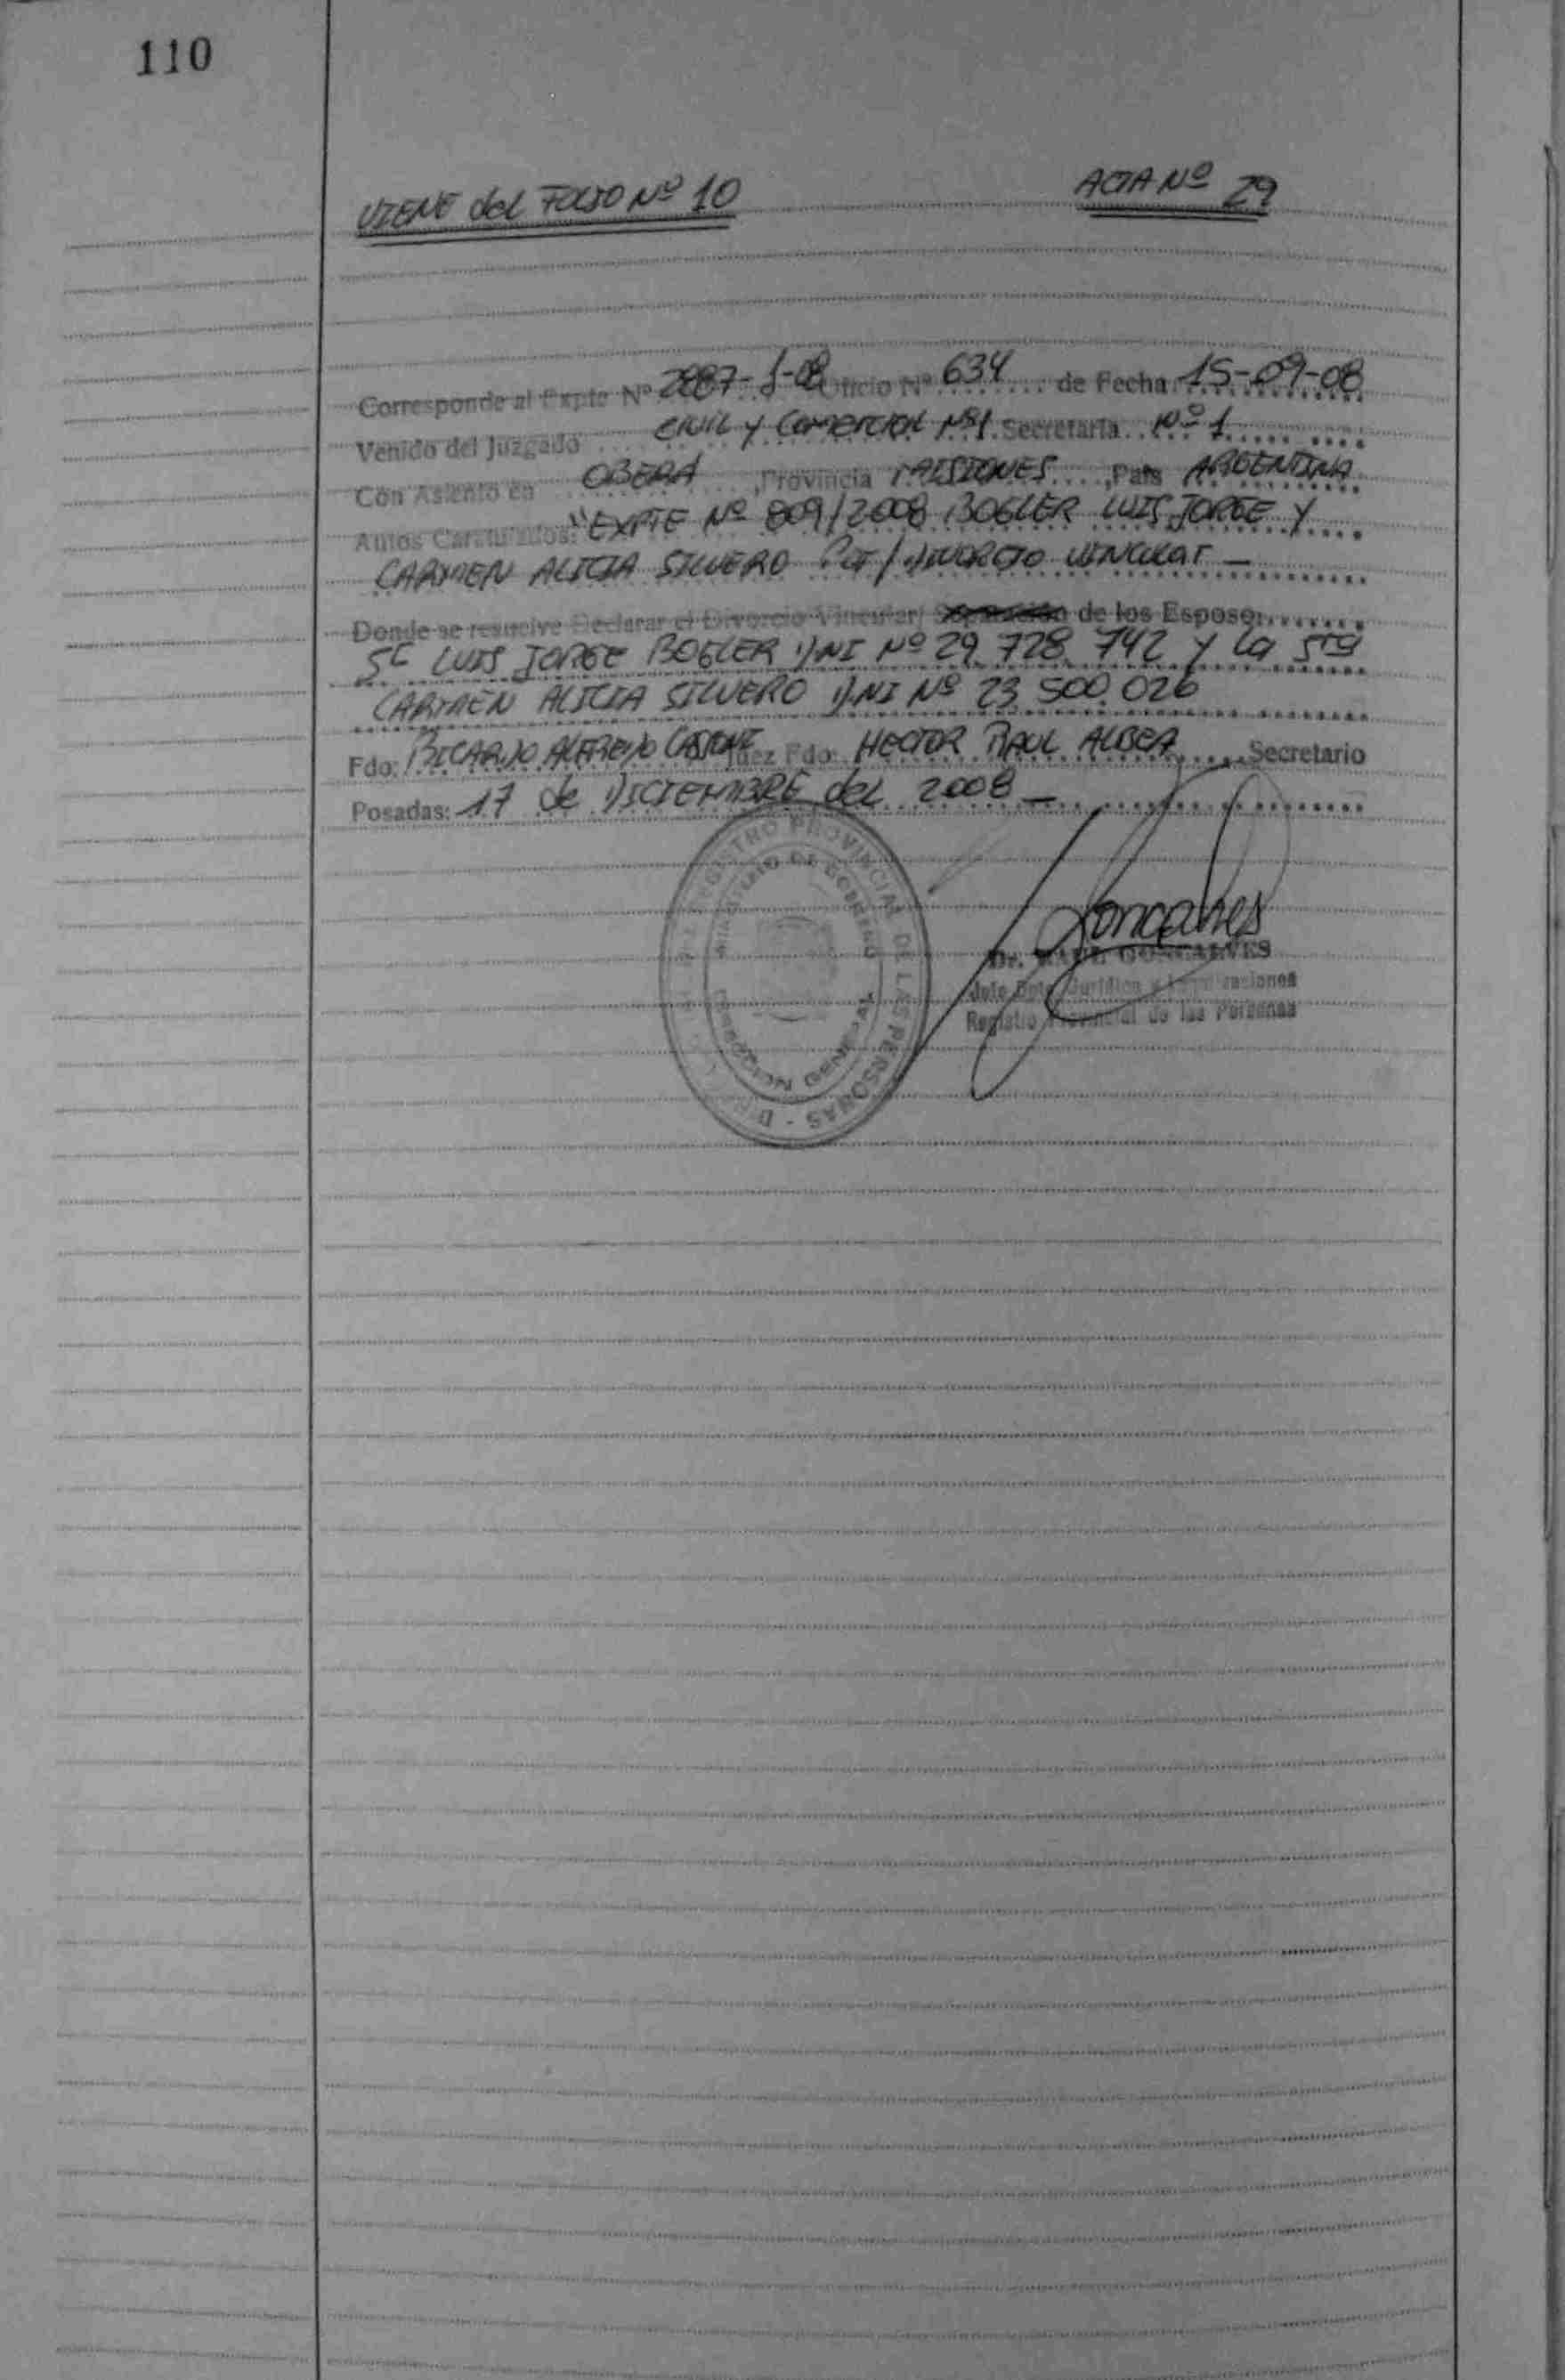 110
VIENE del FOLIO Nº 10
ACTA Nº 29
Corresponde al Expte Nº 2887-J-08 Oficio Nº 634 de Fecha 15-09-08
Venido del Juzgado CIVIL y COMERCIAL Nº1 Secretaria Nº 1
Con Asiento en OBERA ,Provincia MISIONES ,Pais ARGENTINA
Autos Caratulados: "EXPTE Nº 809/2008 BOGLER LUIS JORGE Y
CARMEN ALICIA SILVERO DIVORCIO VINCULAR —
Donde se resuelve Declarar el Divorcio Vincular/ Separación de los Esposo:
Sr LUIS JORGE BOGLER DNI Nº 29 728 742 y la Sra
CARMEN ALICIA SILVERO DNI Nº 23 500.026
Fdo: RICARDO ALFREDO CASSONI Juez Fdo: HECTOR RAUL ALBEA Secretario
Posadas: 17 de DICIEMBRE del 2008 —
REGISTRO PROVINCIAL DE LAS PERSONAS -
MINISTERIO DE GOBIERNO
DIRECCION GENERAL
Goncalves
Dr. GONCALVES
Jefe Dpto. Juridico
Registro Provincial de las Personas